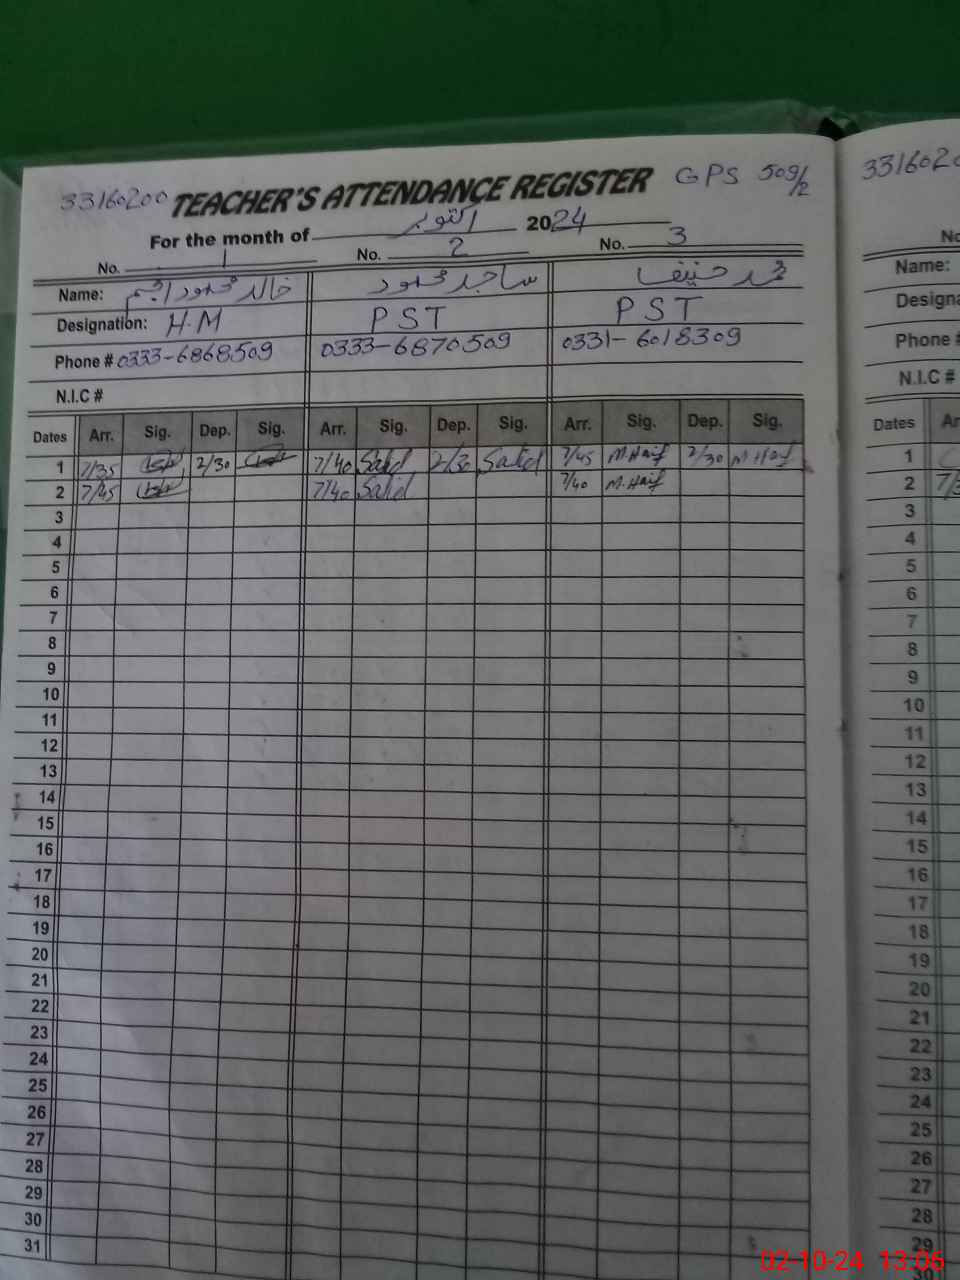 33160200 TEACHER'S ATTENDANCE REGISTER GPS 509/2
For the month of اکتوبر 2024
No. 1 No. 2 No. 3
Name: خالد محمود انجم ساجد محمود محمد حنیف
Designation: H.M PST PST
Phone # 0333-6868509 0333-6870509 0331-6018309
N.I.C #
Dates Arr. Sig. Dep. Sig. Arr. Sig. Dep. Sig. Arr. Sig. Dep. Sig.
1 7/35 2/30 7/40 Sajid 2/30 Sajid 7/45 M.Hanif 2/30 M.Hanif
2 7/45 7/40 Sajid 7/40 M.Hanif
3
4
5
6
7
8
9
10
11
12
13
14
15
16
17
18
19
20
21
22
23
24
25
26
27
28
29
30
31
3316020
No
Name:
Designa
Phone #
N.I.C #
Dates Ar
1
2
3
4
5
6
7
8
9
10
11
12
13
14
15
16
17
18
19
20
21
22
23
24
25
26
27
28
29
30
02-10-24 13:06